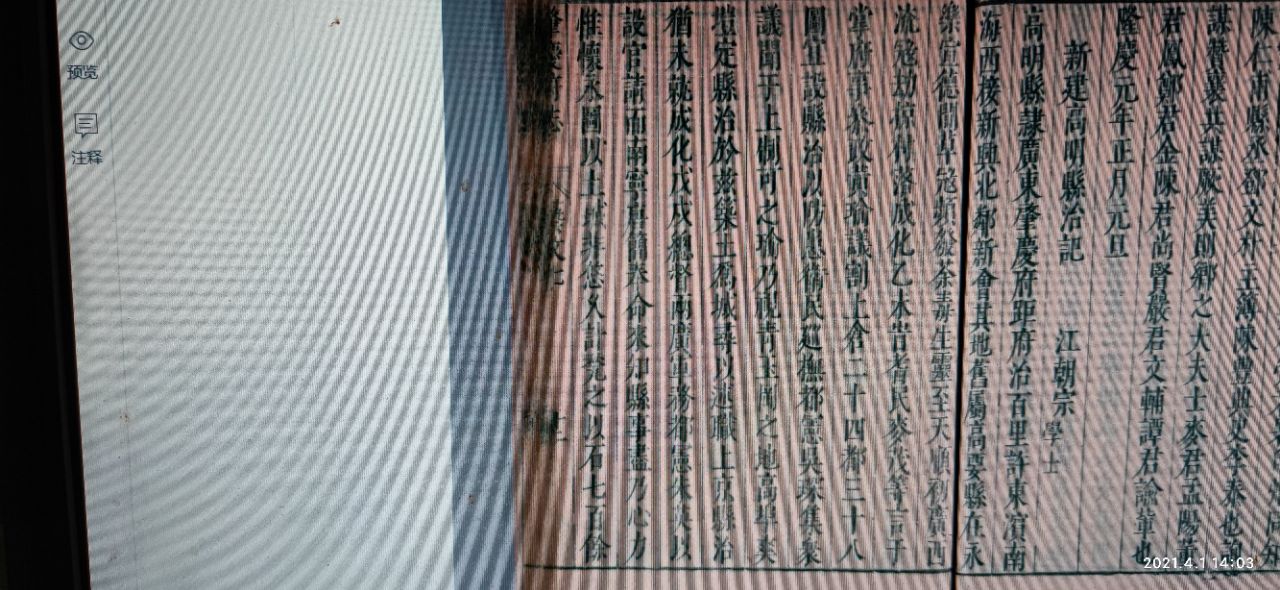 陳仁甫縣丞鄒文朴主簿陳
謀贊襄共謀厥美則鄉之大夫士麥君孟陽黃
君鳳鄭君金陳君尚賢嚴君文輔譚君諭輩也
隆慶元年正月元旦
新建高明縣治記 江朝宗 學士
高明縣隸廣東肇慶府距府治百里許東濱南
海西接新興北鄰新會其地舊屬高要縣在永
樂宣德間草寇頻發荼毒生靈至天順初廣西
流寇劫掠村落成化乙未耆老民麥茂等言于
掌府事參政黃瑜議割上倉二十四都三十八
圖宜設縣治以防患衛民巡撫都憲吳琛集衆
議聞于上制可之瑜乃視青玉岡之地高埠爽
塏定縣治於茲築土爲城尋以述職上京縣治
猶未就成化戊戌總督兩廣軍務都憲朱英以
設官請而兩 命來知縣事盡乃心力
惟懷永圖以土 弗悠久計甃之以石七百餘
2021.4.1 14:03
預览
注释